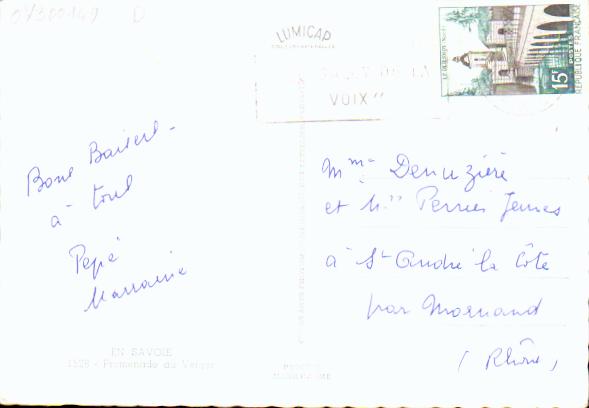 04300149 D
LUMICAP
LE QUESNOY (Nord)
15F
POSTES
REPUBLIQUE FRANÇAISE
DE LA
VOIX"
Bons Baisers
à tous
Pepé
Marraine
Mme Denuzière
et Perrier Jeunes
à St André la Côte
par Mornand
(Rhône)
EN SAVOIE
1528 - Promenade au Verger